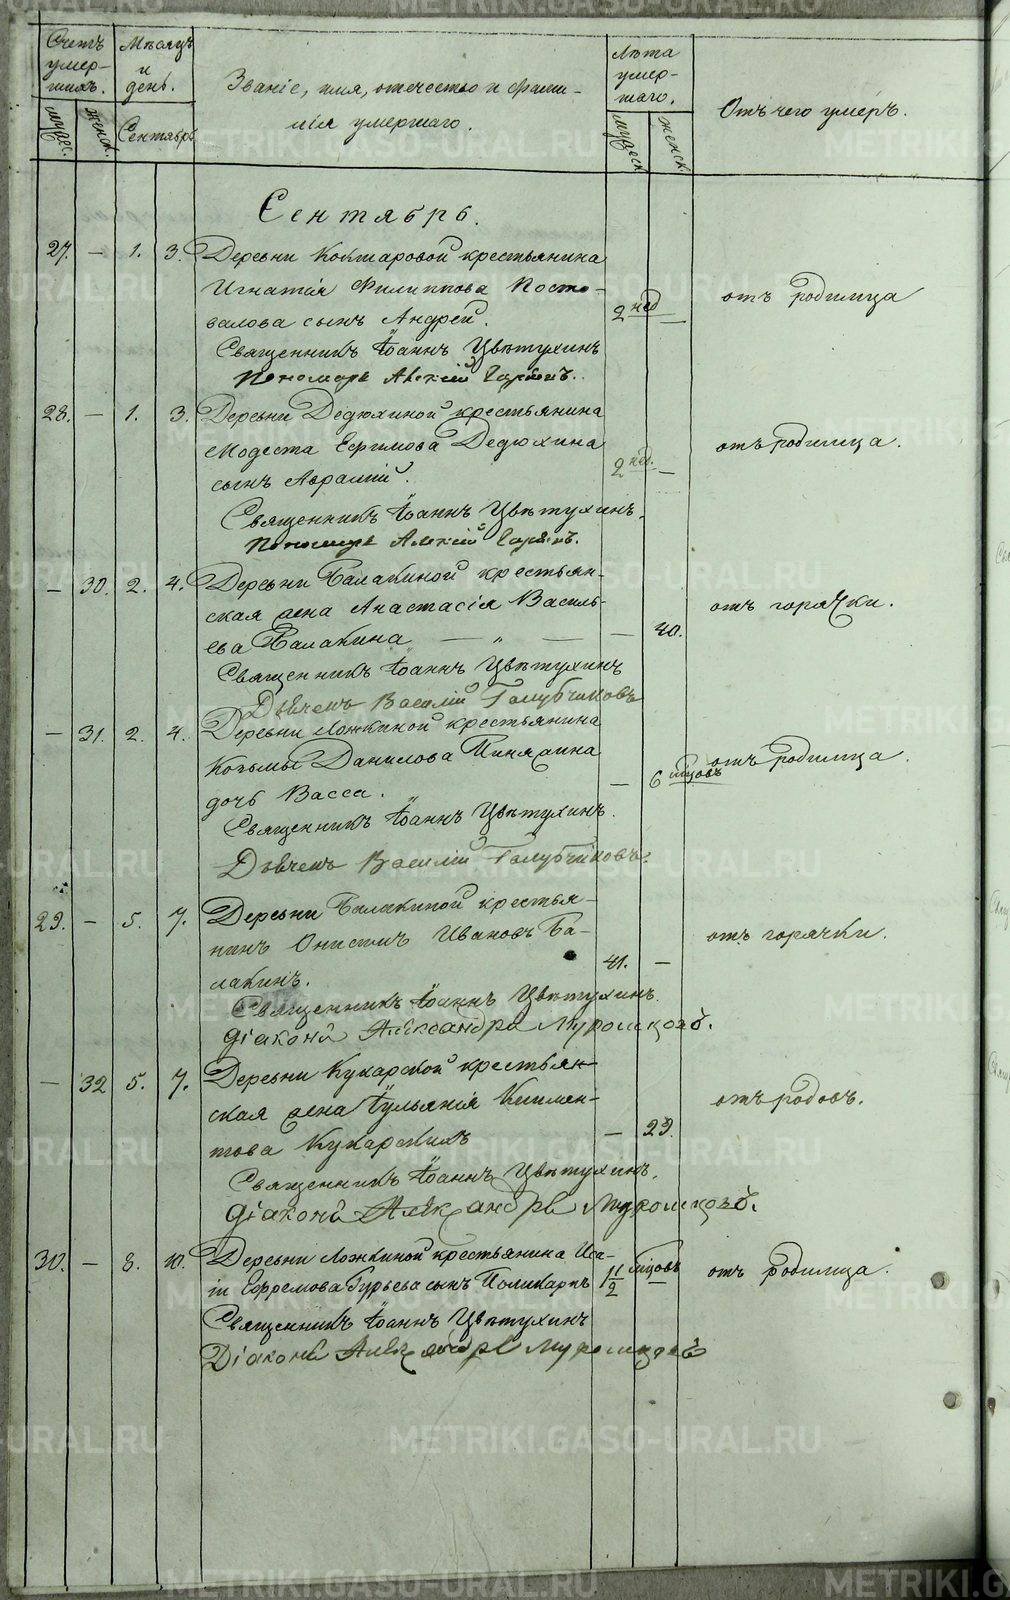 Счетъ умер-шихъ.
Мѣсяцъ и день.
Званіе, имя, отечество и фами-
лія умершаго.
Лѣта умер-шаго.
Отъ чего умеръ.
мужес. женск. Сентябрь мужеск. женск.
Сентябрь.
27. — 1. 3. Деревни Коктаровой крестьянина
Игнатія Филиппова Посто-
валова сынъ Андрей. 2 нед — отъ родимца
Священникъ Іоаннъ Цвѣтухинъ
Пономарь Алексій
28. — 1. 3. Деревни Дедюхиной крестьянина
Модеста Ефимова Дедюхина
сынъ Авраамій. 2 нед. — отъ родимца.
Священникъ Іоаннъ Цвѣтухинъ.
Пономарь Алексій
— 30. 2. 4. Деревни Балакиной крестьян-
ская жена Анастасія Василь-
ева Балакина — „ — — 40. отъ горячки.
Священникъ Іоаннъ Цвѣтухинъ
Дьячекъ Василій Голубчиковъ
— 31. 2. 4. Деревни Ложкиной крестьянина
Козьмы Данилова Пинягина
дочь Васса. — 6 мѣцовъ отъ родимца.
Священникъ Іоаннъ Цвѣтухинъ.
Дьячекъ Василій Голубчиковъ.
29. — 5. 7. Деревни Балакиной крестья-
нинъ Онисимъ Ивановъ Ба-
лакинъ. 41. — отъ горячки.
Священникъ Іоаннъ Цвѣтухинъ.
Діаконъ Александръ Муромцовъ.
— 32 5. 7. Деревни Кукарской крестьян-
ская жена Іульянія Климен-
това Кукарскихъ — 29. отъ родовъ.
Священникъ Іоаннъ Цвѣтухинъ.
Діаконъ Александръ Муромцовъ.
30. — 8. 10. Деревни Ложкиной крестьянина Иса-
іи Ефремова Гурьева сынъ Поликарпъ 1 1/2 мѣцовъ — отъ родимца.
Священникъ Іоаннъ Цвѣтухинъ
Діаконъ Александръ Муромцовъ
METRIKI.GASO-URAL.RU